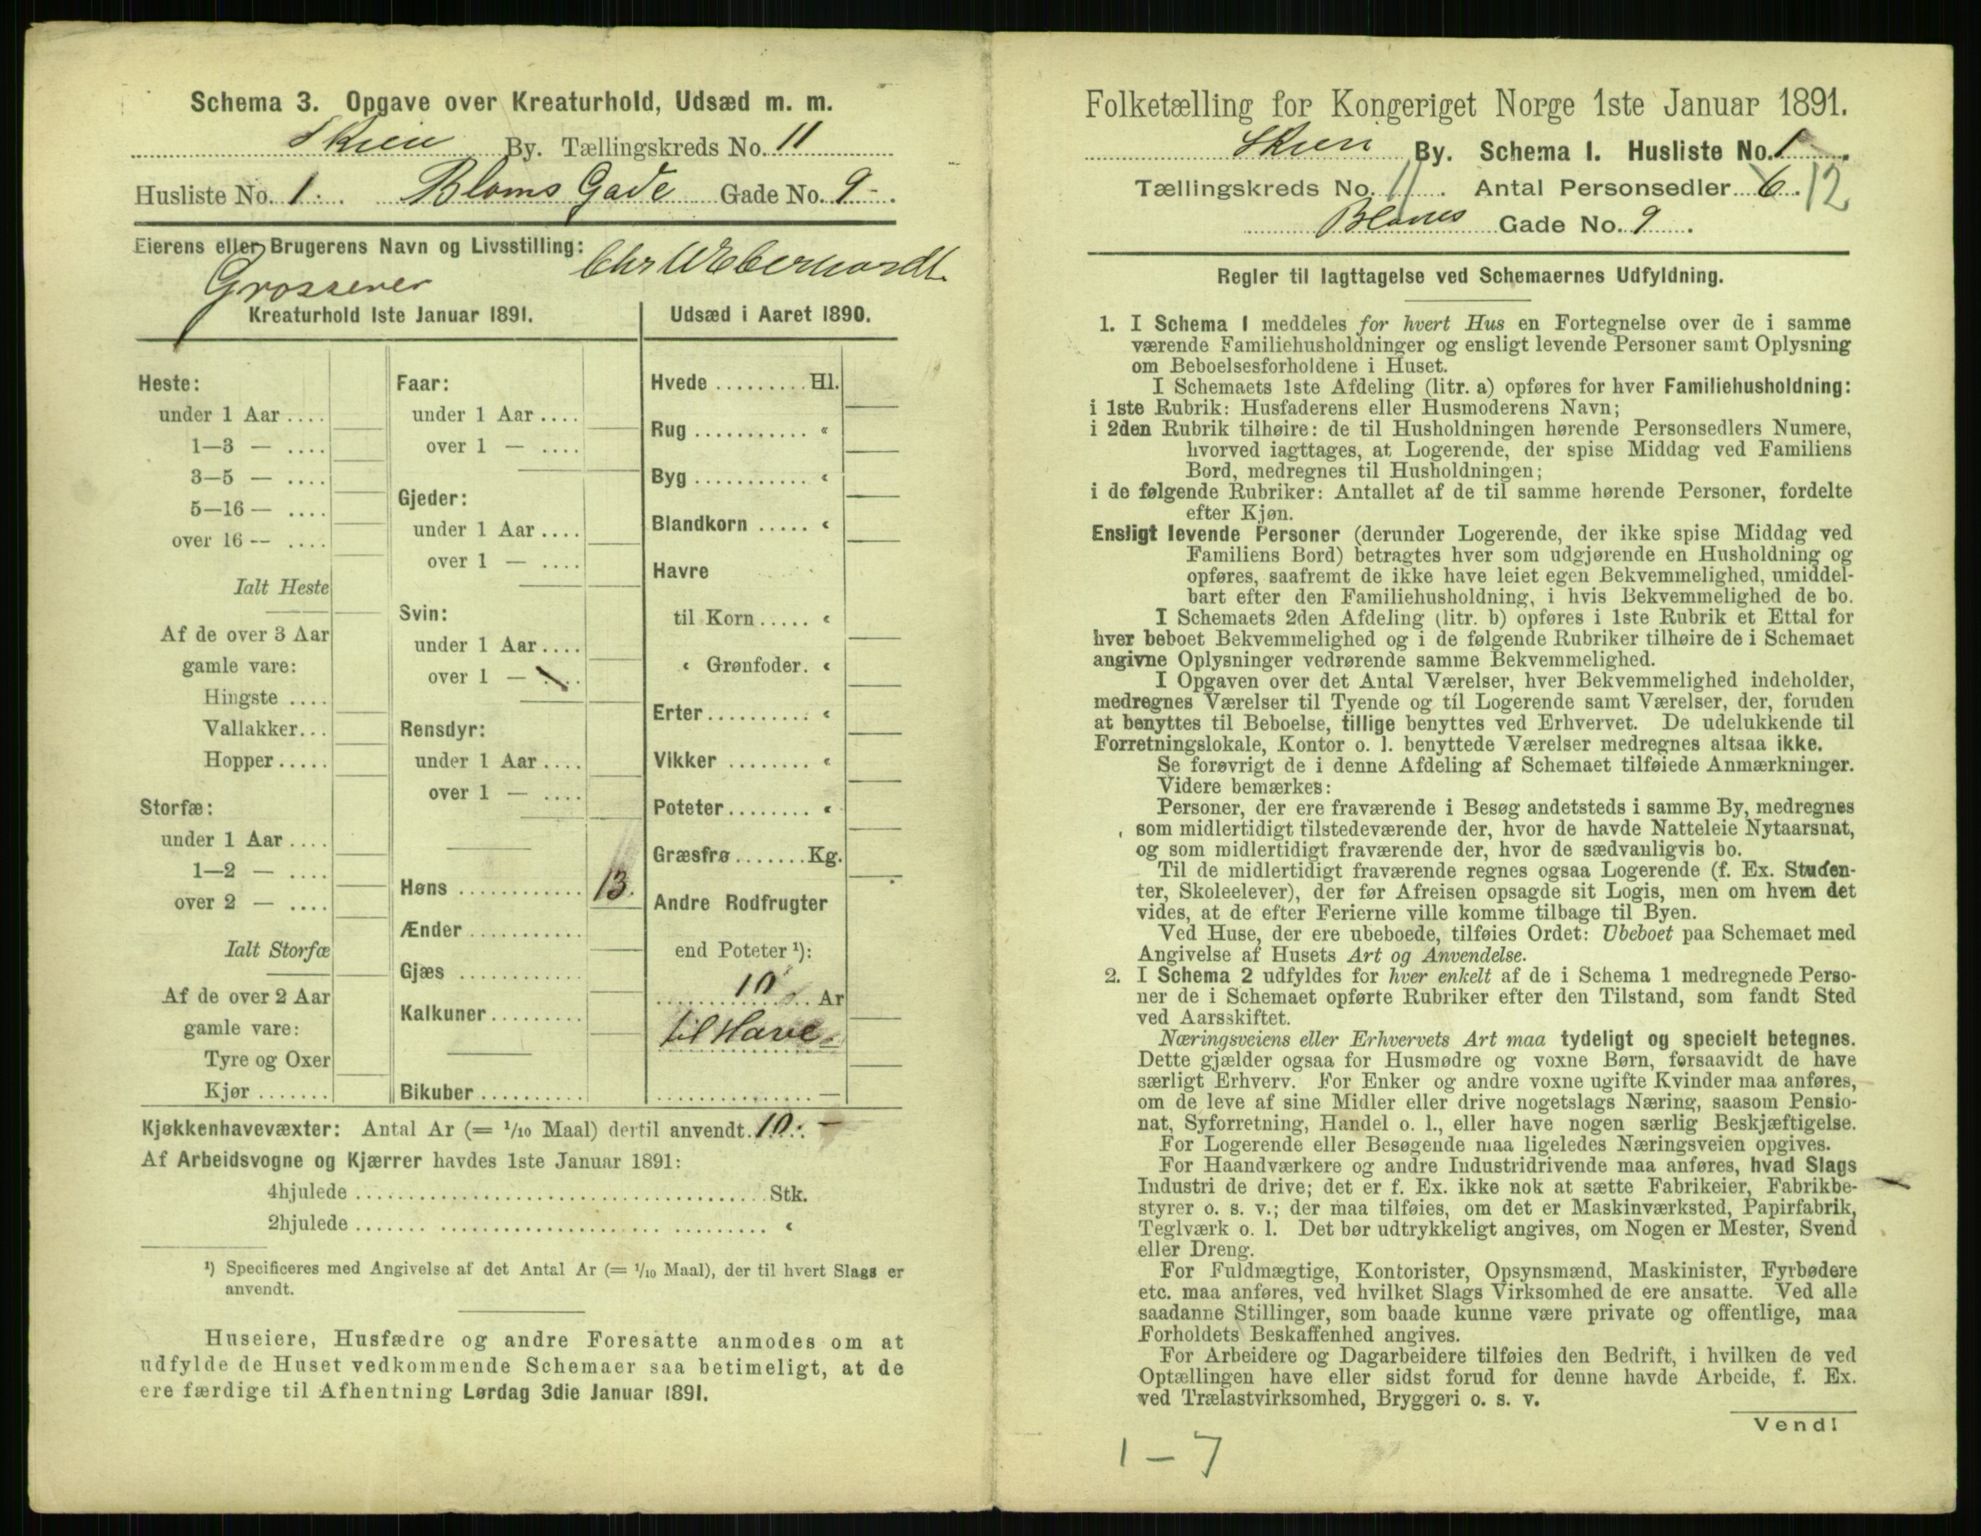 Schema 3. Opgave over Kreaturhold, Udsæd m. m.
Skien By. Tællingskreds No. 11
Husliste No. 1. Bloms Gade Gade No. 9.
Eierens eller Brugerens Navn og Livsstilling:
Chr W Eberhardt.
Grosserer
Kreaturhold 1ste Januar 1891.
Heste:
under 1 Aar ....
1—3 — ....
3—5 — ....
5—16 — ....
over 16 — ....
Ialt Heste
Af de over 3 Aar
gamle vare:
Hingste ....
Vallakker...
Hopper.....
Storfæ:
under 1 Aar ....
1—2 — ....
over 2 — ....
Ialt Storfæ
Af de over 2 Aar
gamle vare:
Tyre og Oxer
Kjør .......
Faar:
under 1 Aar ....
over 1 — ....
Gjeder:
under 1 Aar ....
over 1 — ....
Svin:
under 1 Aar ....
over 1 — ....
Rensdyr:
under 1 Aar ....
over 1 — ....
Høns ............ 13.
Ænder ...........
Gjæs ............
Kalkuner.........
Bikuber..........
Udsæd i Aaret 1890.
Hvede .........Hl.
Rug ........... «
Byg ........... «
Blandkorn ..... «
Havre
til Korn ..... «
« Grønfoder. «
Erter.......... «
Vikker ........ «
Poteter........ «
Græsfrø .......Kg.
Andre Rodfrugter
end Poteter ¹):
10 Ar
til Have „
Kjøkkenhavevæxter: Antal Ar (= 1/10 Maal) dertil anvendt. 10. —
Af Arbeidsvogne og Kjærrer havdes 1ste Januar 1891:
4hjulede ........................................ Stk.
2hjulede ........................................ «
¹) Specificeres med Angivelse af det Antal Ar (= 1/10 Maal), der til hvert Slags er
anvendt.
Huseiere, Husfædre og andre Foresatte anmodes om at
udfylde de Huset vedkommende Schemaer saa betimeligt, at de
ere færdige til Afhentning Lørdag 3die Januar 1891.
Folketælling for Kongeriget Norge 1ste Januar 1891.
Skien By. Schema I. Husliste No. 1.
Tællingskreds No. 11. Antal Personsedler 6. 12
Bloms Gade No. 9.
Regler til Iagttagelse ved Schemaernes Udfyldning.
1. I Schema 1 meddeles for hvert Hus en Fortegnelse over de i samme
værende Familiehusholdninger og ensligt levende Personer samt Oplysning
om Beboelsesforholdene i Huset.
I Schemaets 1ste Afdeling (litr. a) opføres for hver Familiehusholdning:
i 1ste Rubrik: Husfaderens eller Husmoderens Navn;
i 2den Rubrik tilhøire: de til Husholdningen hørende Personsedlers Numere,
hvorved iagttages, at Logerende, der spise Middag ved Familiens
Bord, medregnes til Husholdningen;
i de følgende Rubriker: Antallet af de til samme hørende Personer, fordelte
efter Kjøn.
Ensligt levende Personer (derunder Logerende, der ikke spise Middag ved
Familiens Bord) betragtes hver som udgjørende en Husholdning og
opføres, saafremt de ikke have leiet egen Bekvemmelighed, umiddel-
bart efter den Familiehusholdning, i hvis Bekvemmelighed de bo.
I Schemaets 2den Afdeling (litr. b) opføres i 1ste Rubrik et Ettal for
hver beboet Bekvemmelighed og i de følgende Rubriker tilhøire de i Schemaet
angivne Oplysninger vedrørende samme Bekvemmelighed.
I Opgaven over det Antal Værelser, hver Bekvemmelighed indeholder,
medregnes Værelser til Tyende og til Logerende samt Værelser, der, foruden
at benyttes til Beboelse, tillige benyttes ved Erhvervet. De udelukkende til
Forretningslokale, Kontor o. l. benyttede Værelser medregnes altsaa ikke.
Se forøvrigt de i denne Afdeling af Schemaet tilføiede Anmærkninger.
Videre bemærkes:
Personer, der ere fraværende i Besøg andetsteds i samme By, medregnes
som midlertidigt tilstedeværende der, hvor de havde Natteleie Nytaarsnat,
og som midlertidigt fraværende der, hvor de sædvanligvis bo.
Til de midlertidigt fraværende regnes ogsaa Logerende (f. Ex. Studen-
ter, Skoleelever), der før Afreisen opsagde sit Logis, men om hvem det
vides, at de efter Ferierne ville komme tilbage til Byen.
Ved Huse, der ere ubeboede, tilføies Ordet: Ubeboet paa Schemaet med
Angivelse af Husets Art og Anvendelse.
2. I Schema 2 udfyldes for hver enkelt af de i Schema 1 medregnede Perso-
ner de i Schemaet opførte Rubriker efter den Tilstand, som fandt Sted
ved Aarsskiftet.
Næringsveiens eller Erhvervets Art maa tydeligt og specielt betegnes.
Dette gjælder ogsaa for Husmødre og voxne Børn, forsaavidt de have
særligt Erhverv. For Enker og andre voxne ugifte Kvinder maa anføres,
om de leve af sine Midler eller drive nogetslags Næring, saasom Pensio-
nat, Syforretning, Handel o. l., eller have nogen særlig Beskjæftigelse.
For Logerende eller Besøgende maa ligeledes Næringsveien opgives.
For Haandværkere og andre Industridrivende maa anføres, hvad Slags
Industri de drive; det er f. Ex. ikke nok at sætte Fabrikeier, Fabrikbe-
styrer o. s. v.; der maa tilføies, om det er Maskinværksted, Papirfabrik,
Teglværk o. l. Det bør udtrykkeligt angives, om Nogen er Mester, Svend
eller Dreng.
For Fuldmægtige, Kontorister, Opsynsmænd, Maskinister, Fyrbødere
etc. maa anføres, ved hvilket Slags Virksomhed de ere ansatte. Ved alle
saadanne Stillinger, som baade kunne være private og offentlige, maa
Forholdets Beskaffenhed angives.
For Arbeidere og Dagarbeidere tilføies den Bedrift, i hvilken de ved
Optællingen have eller sidst forud for denne havde Arbeide, f. Ex.
ved Trælastvirksomhed, Bryggeri o. s. v.
Vend!
1 – 7